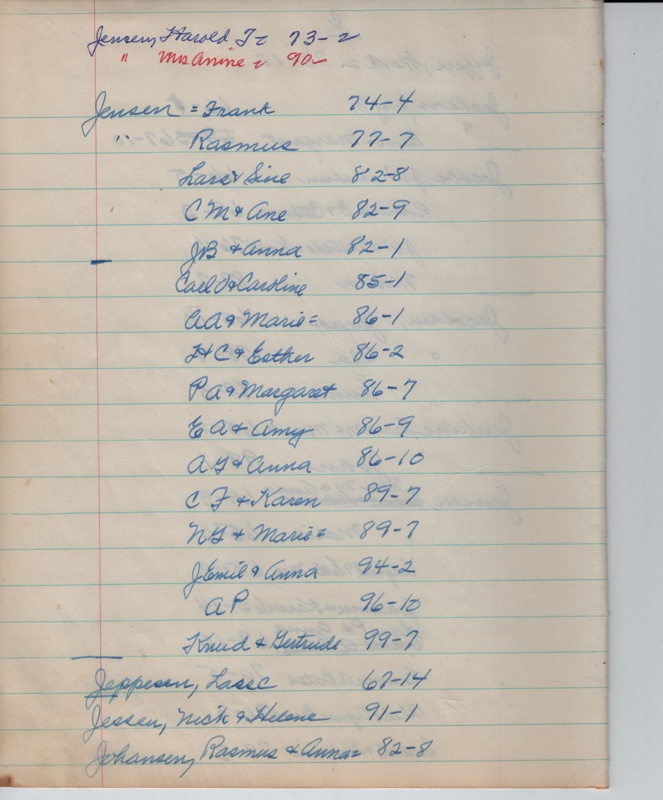 Jensen, Harold T= 73-2
" Mrs Anine = 90-
Jensen = Frank 74-4
" Rasmus 77-7
Lars & Sine 82-8
CM & Ane 82-9
JB & Anna 82-1
Carl & Caroline 85-1
AA & Marie= 86-1
HC & Esther 86-2
PA & Margaret 86-7
EA & Amy 86-9
AG & Anna 86-10
CF & Karen 89-7
NG & Marie= 89-7
J Emil & Anna 94-2
AP 96-10
Knud & Gertrude 99-7
Jeppesen, Lasse 67-14
Jessen, Nick & Helene 91-1
Johansen, Rasmus & Anna= 82-8